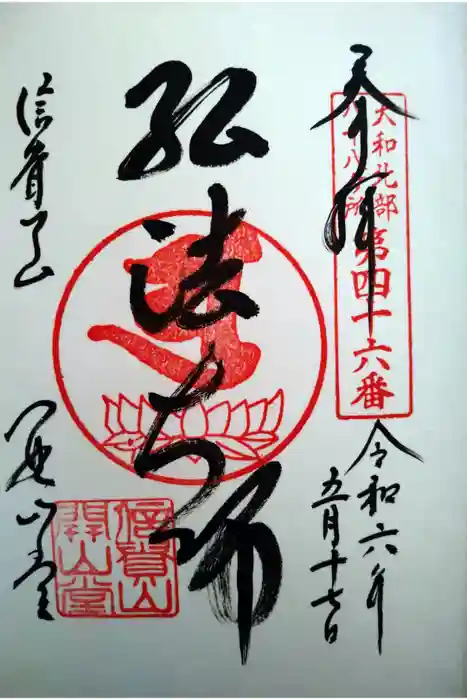 奉拝
大和北部
八十八ヶ所
第四十六番
令和六年
五月十七日
弘法大師
信貴山
開山堂
信貴山
開山堂